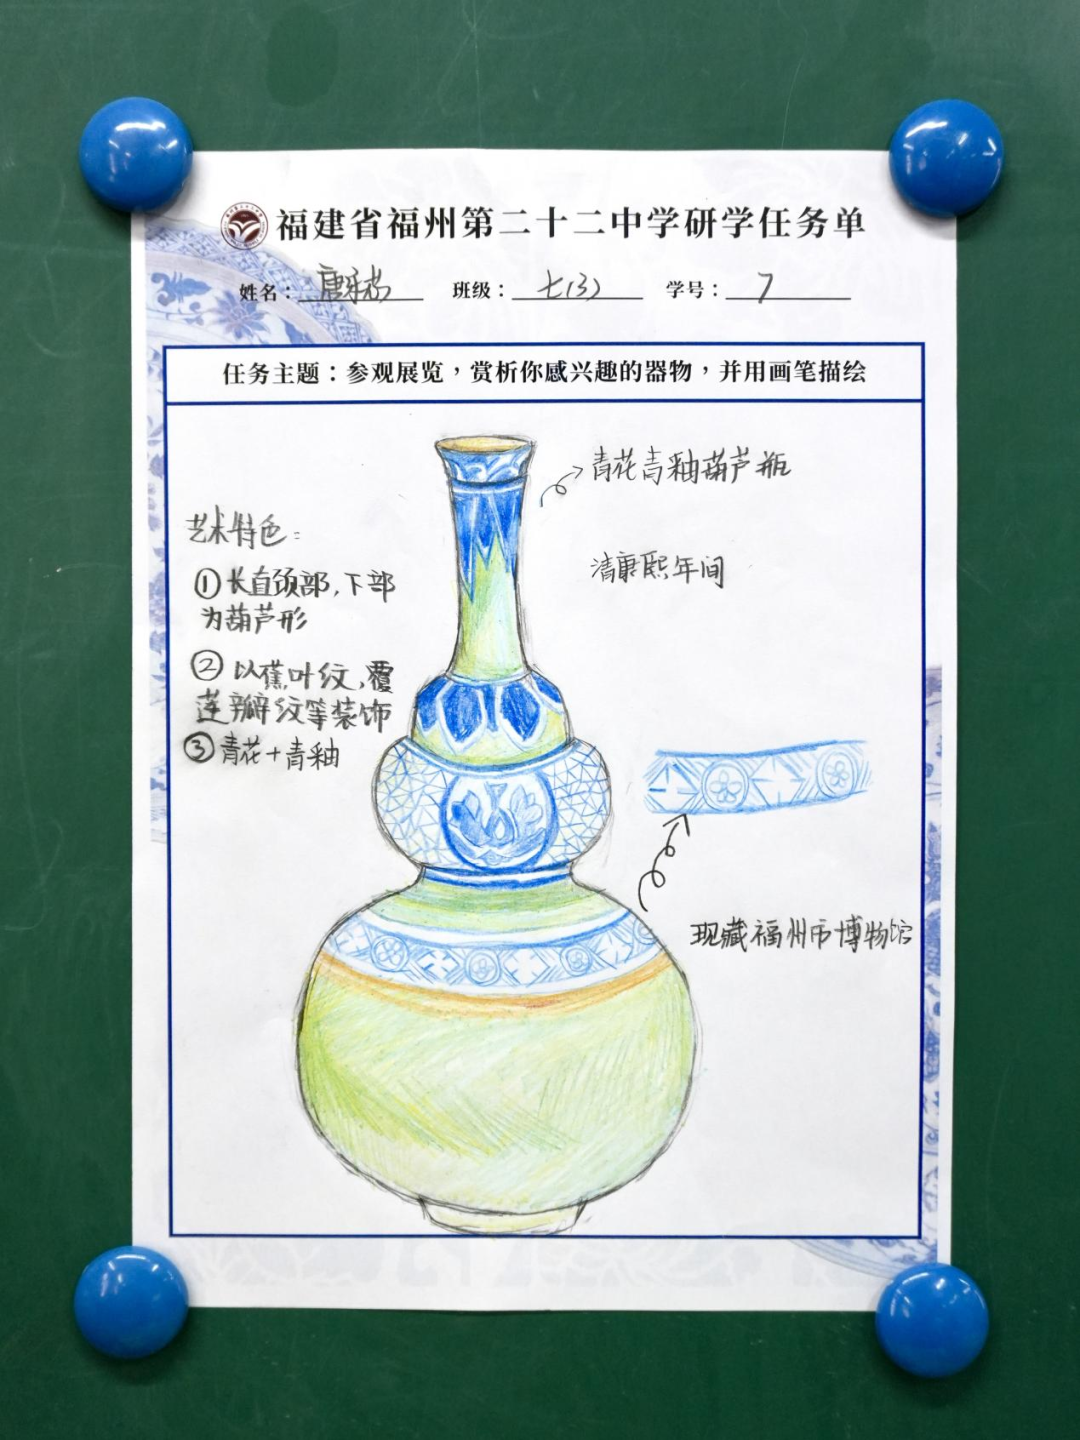 福建省福州第二十二中学研学任务单
姓名： 班级：七(3) 学号：7
任务主题：参观展览，赏析你感兴趣的器物，并用画笔描绘
青花青釉葫芦瓶
清康熙年间
艺术特色：
①长直颈部，下部
为葫芦形
②以蕉叶纹，覆
莲瓣纹等装饰
③青花+青釉
现藏福州市博物馆